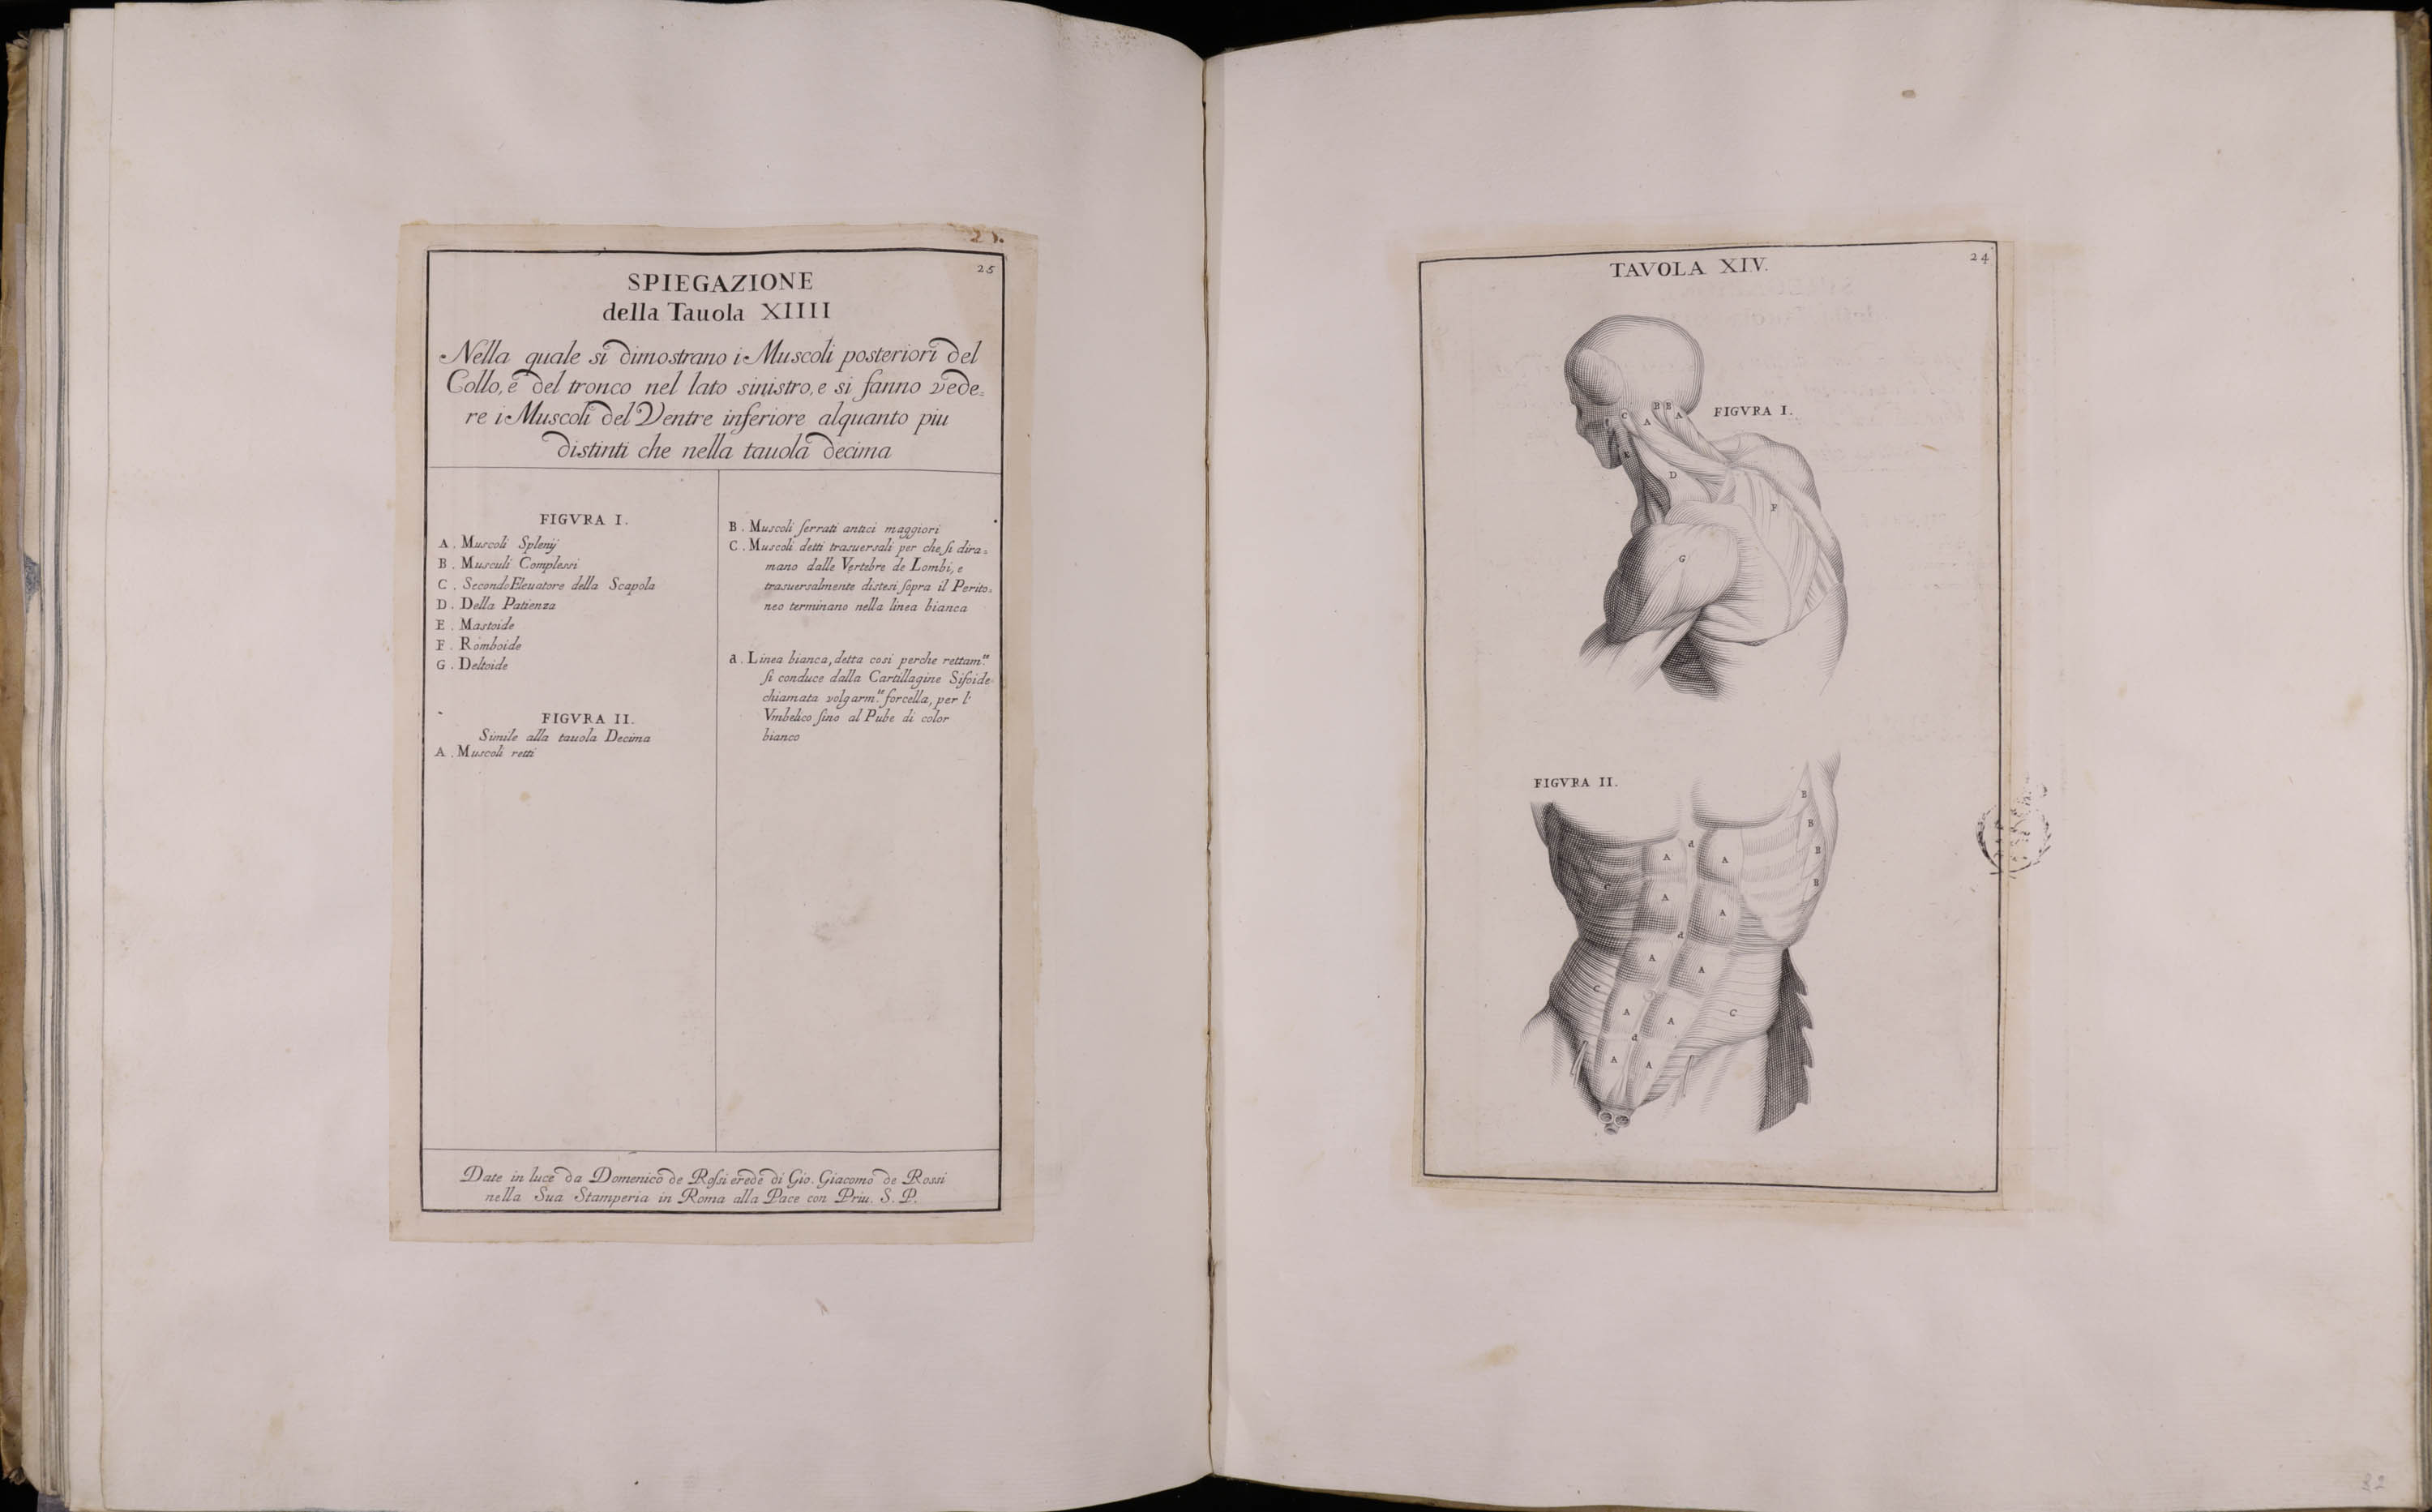 25
SPIEGAZIONE
della Tauola XIIII
Nella quale si dimostrano i Muscoli posteriori del
Collo, e del tronco nel lato sinistro, e si fanno vede=
re i Muscoli del Ventre inferiore alquanto piu
distinti che nella tauola decima
FIGVRA I.
A. Muscoli Splenij
B. Musculi Complessi
C. Secondo Eleuatore della Scapola
D. Della Patienza
E. Mastoide
F. Romboide
G. Deltoide
FIGVRA II.
Simile alla tauola Decima
A. Muscoli retti
B. Muscoli ſerrati antici maggiori
C. Muscoli detti trasuersali per che ſi dira=
mano dalle Vertebre de Lombi, e
trasuersalmente distesi ſopra il Perito=
neo terminano nella linea bianca
d. Linea bianca, detta cosi perche rettam.te
ſi conduce dalla Cartillagine Sifoide
chiamata volgarm.te forcella, per l'
Vmbelico ſino al Pube di color
bianco
Date in luce da Domenico de Roſsi erede di Gio. Giacomo de Rossi
nella Sua Stamperia in Roma alla Pace con Priu. S. P.
24
TAVOLA XIV.
FIGVRA I.
B E
C A
A
E
D
F
G
FIGVRA II.
B
B
d
A A B
C B
A A
d
A A
C
A A C
d
A A
22